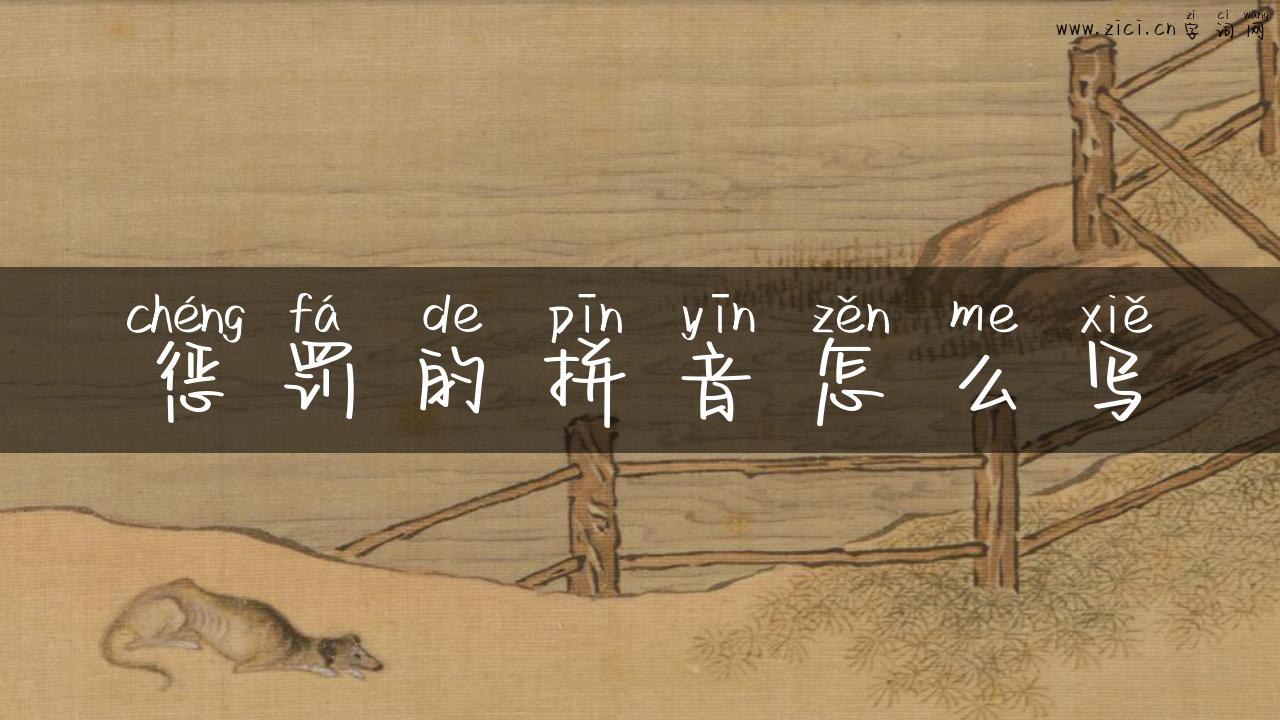 zì cí wǎng
www.zici.cn 字词网
chéng fá de pīn yīn zěn me xiě
惩罚的拼音怎么写